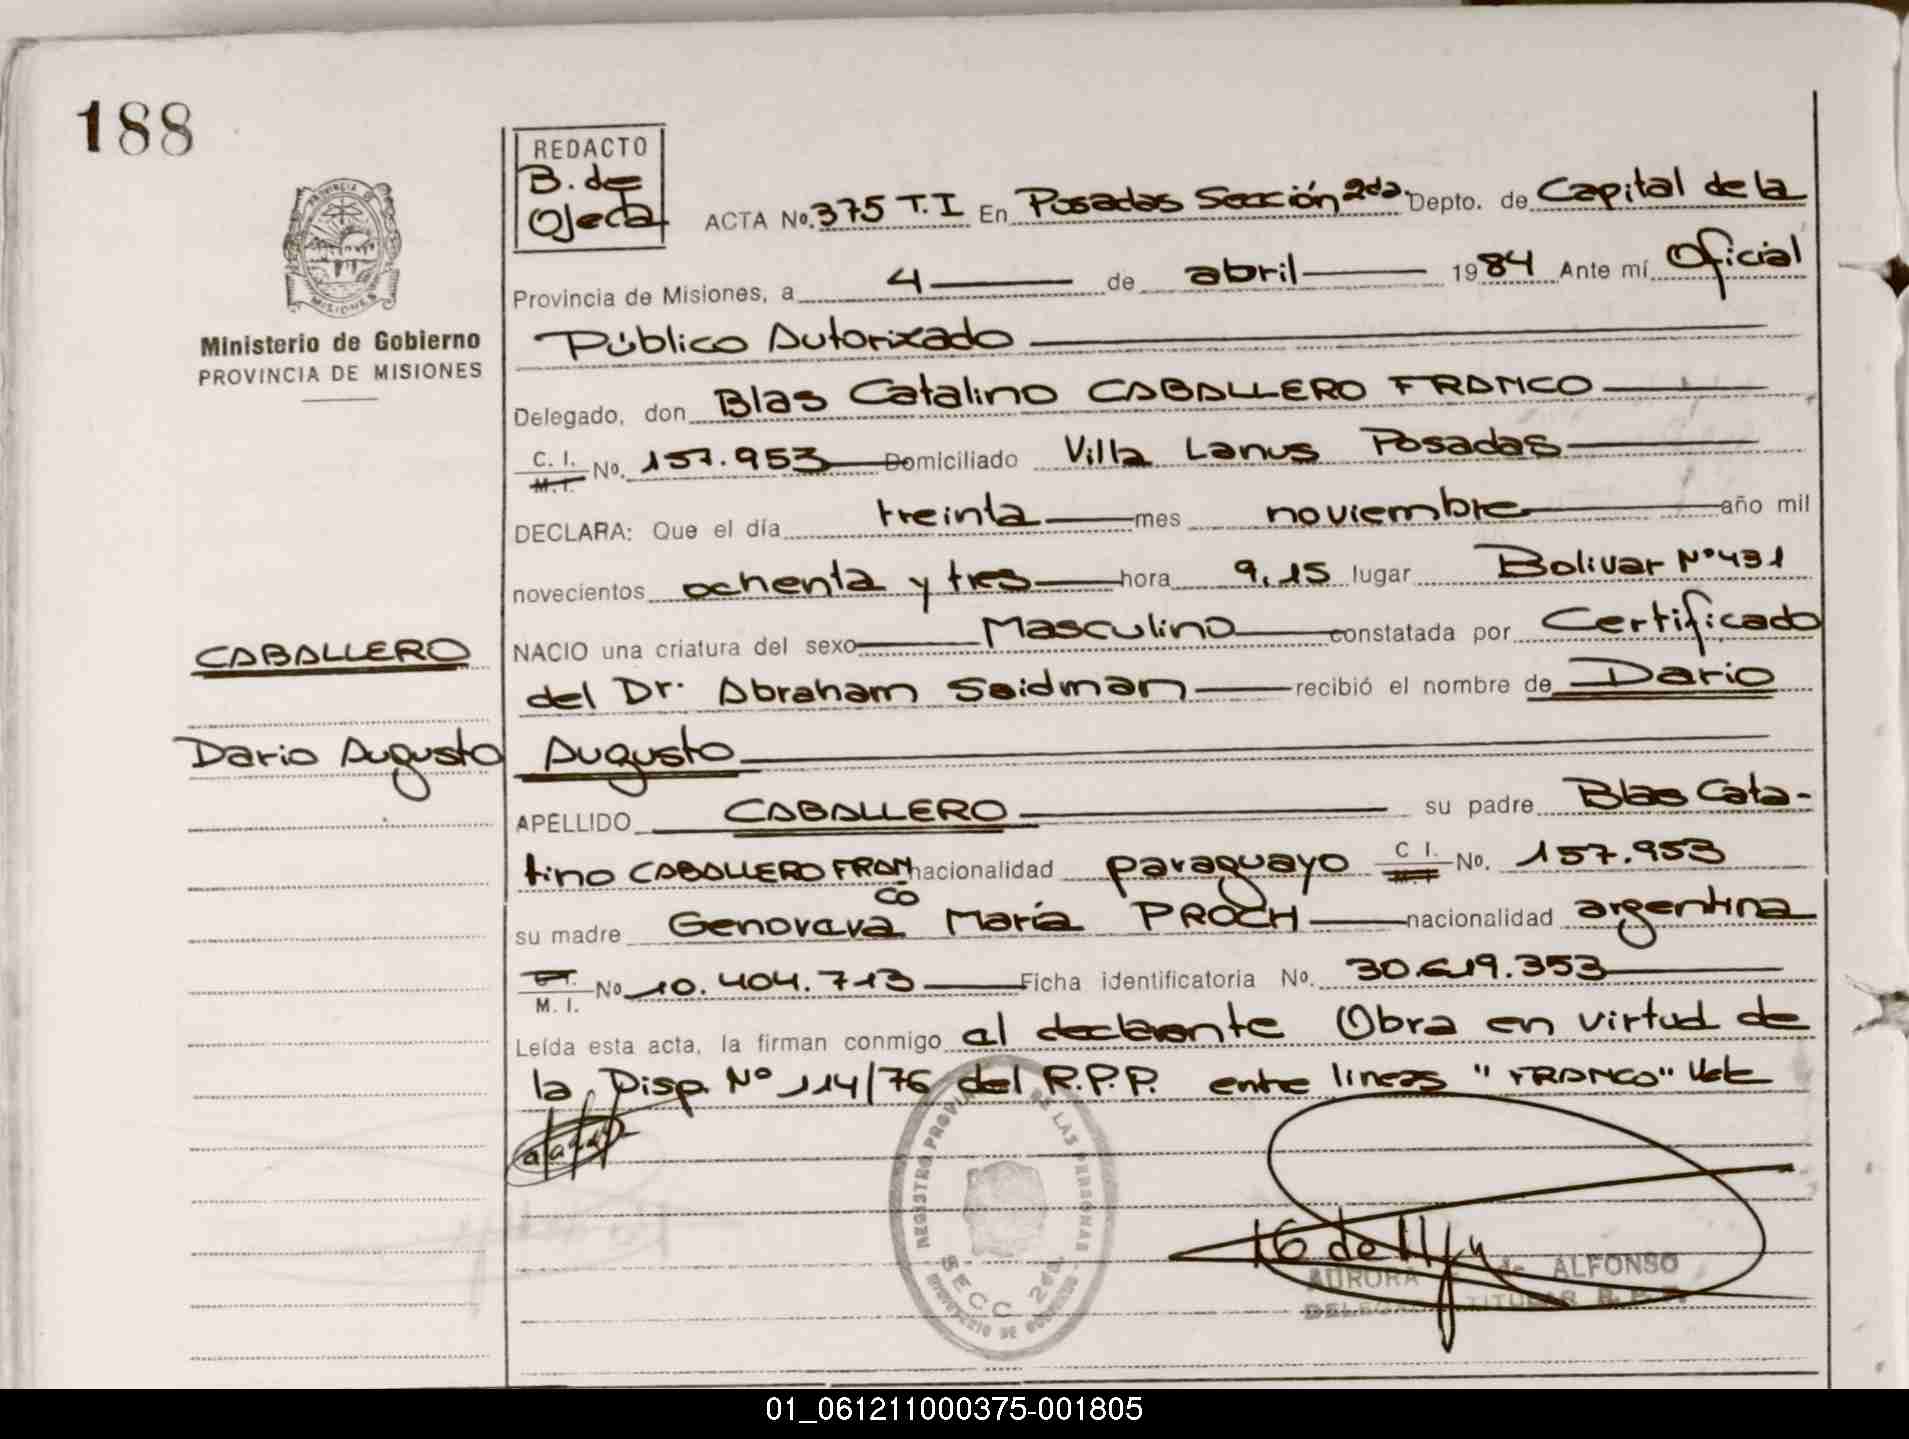 188
REDACTO
B. de
Ojeda
ACTA No. 375 T.I En Posadas Sección 2da. Depto. de Capital de la
Provincia de Misiones, a 4 de abril 1984 Ante mí Oficial
Público Autorizado
Delegado, don Blas Catalino CABALLERO FRANCO
C. I. M. I. No. 157.953 Domiciliado Villa Lanus Posadas
DECLARA: Que el día treinta mes noviembre año mil
novecientos ochenta y tres hora 9,15 lugar Bolivar Nº 431
NACIO una criatura del sexo Masculino constatada por Certificado
del Dr. Abraham Saidman recibió el nombre de Dario
Augusto
APELLIDO CABALLERO su padre Blas Cata-
lino CABALLERO FRAN nacionalidad paraguayo C I. M. I No. 157.953
CO
su madre Genoveva María PROCH nacionalidad argentina
C. I. M. I. No 10.404.713 Ficha identificatoria No. 30.619.353
Leída esta acta, la firman conmigo el declarante Obra en virtud de
la Disp. Nº 114/76 del R.P.P. entre lineas "FRANCO" Vale
PROVINCIA DE
MISIONES
Ministerio de Gobierno
PROVINCIA DE MISIONES
CABALLERO
Dario Augusto
REGISTRO PROVINCIAL DE LAS PERSONAS
SECC. 2da.
MINISTERIO DE GOBIERNO
AURORA de ALFONSO
DELEGADA TITULAR R. P. P.
01_061211000375-001805